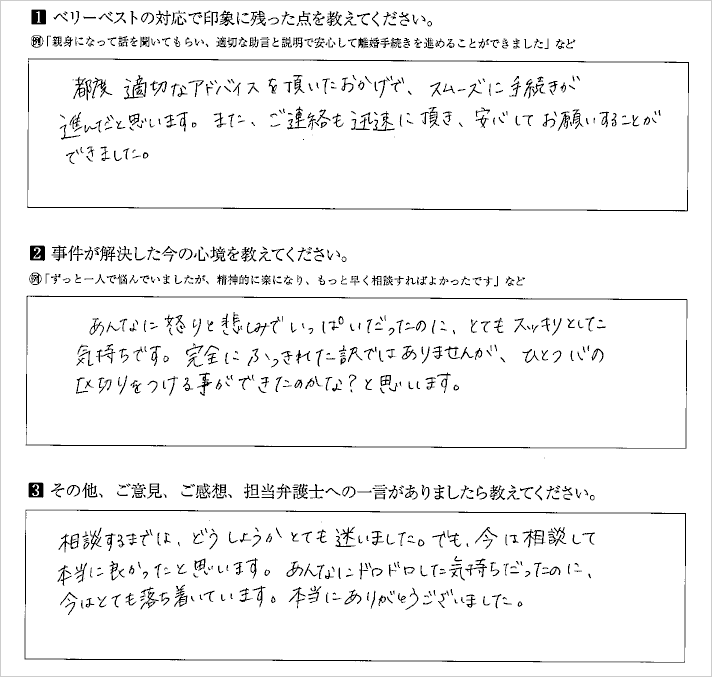 1 ベリーベストの対応で印象に残った点を教えてください。
例「親身になって話を聞いてもらい、適切な助言と説明で安心して離婚手続きを進めることができました」など
都度 適切なアドバイスを頂いたおかげで、スムーズに手続きが
進んだと思います。また、ご連絡も迅速に頂き、安心してお願いすることが
できました。
2 事件が解決した今の心境を教えてください。
例「ずっと一人で悩んでいましたが、精神的に楽になり、もっと早く相談すればよかったです」など
あんなに怒りと悲しみでいっぱいだったのに、とてもスッキリとした
気持ちです。完全にふっきれた訳ではありませんが、ひとつ心の
区切りをつける事ができたのかな?と思います。
3 その他、ご意見、ご感想、担当弁護士への一言がありましたら教えてください。
相談するまでは、どうしようかとても迷いました。でも、今は相談して
本当に良かったと思います。あんなにドロドロした気持ちだったのに、
今はとても落ち着いています。本当にありがとうございました。